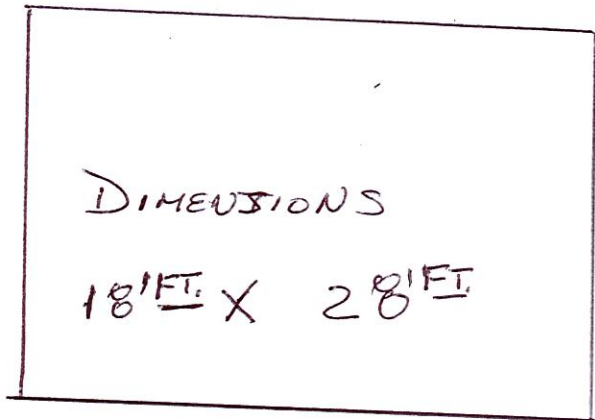 DIMENSIONS
18'FT. X 28'FT.